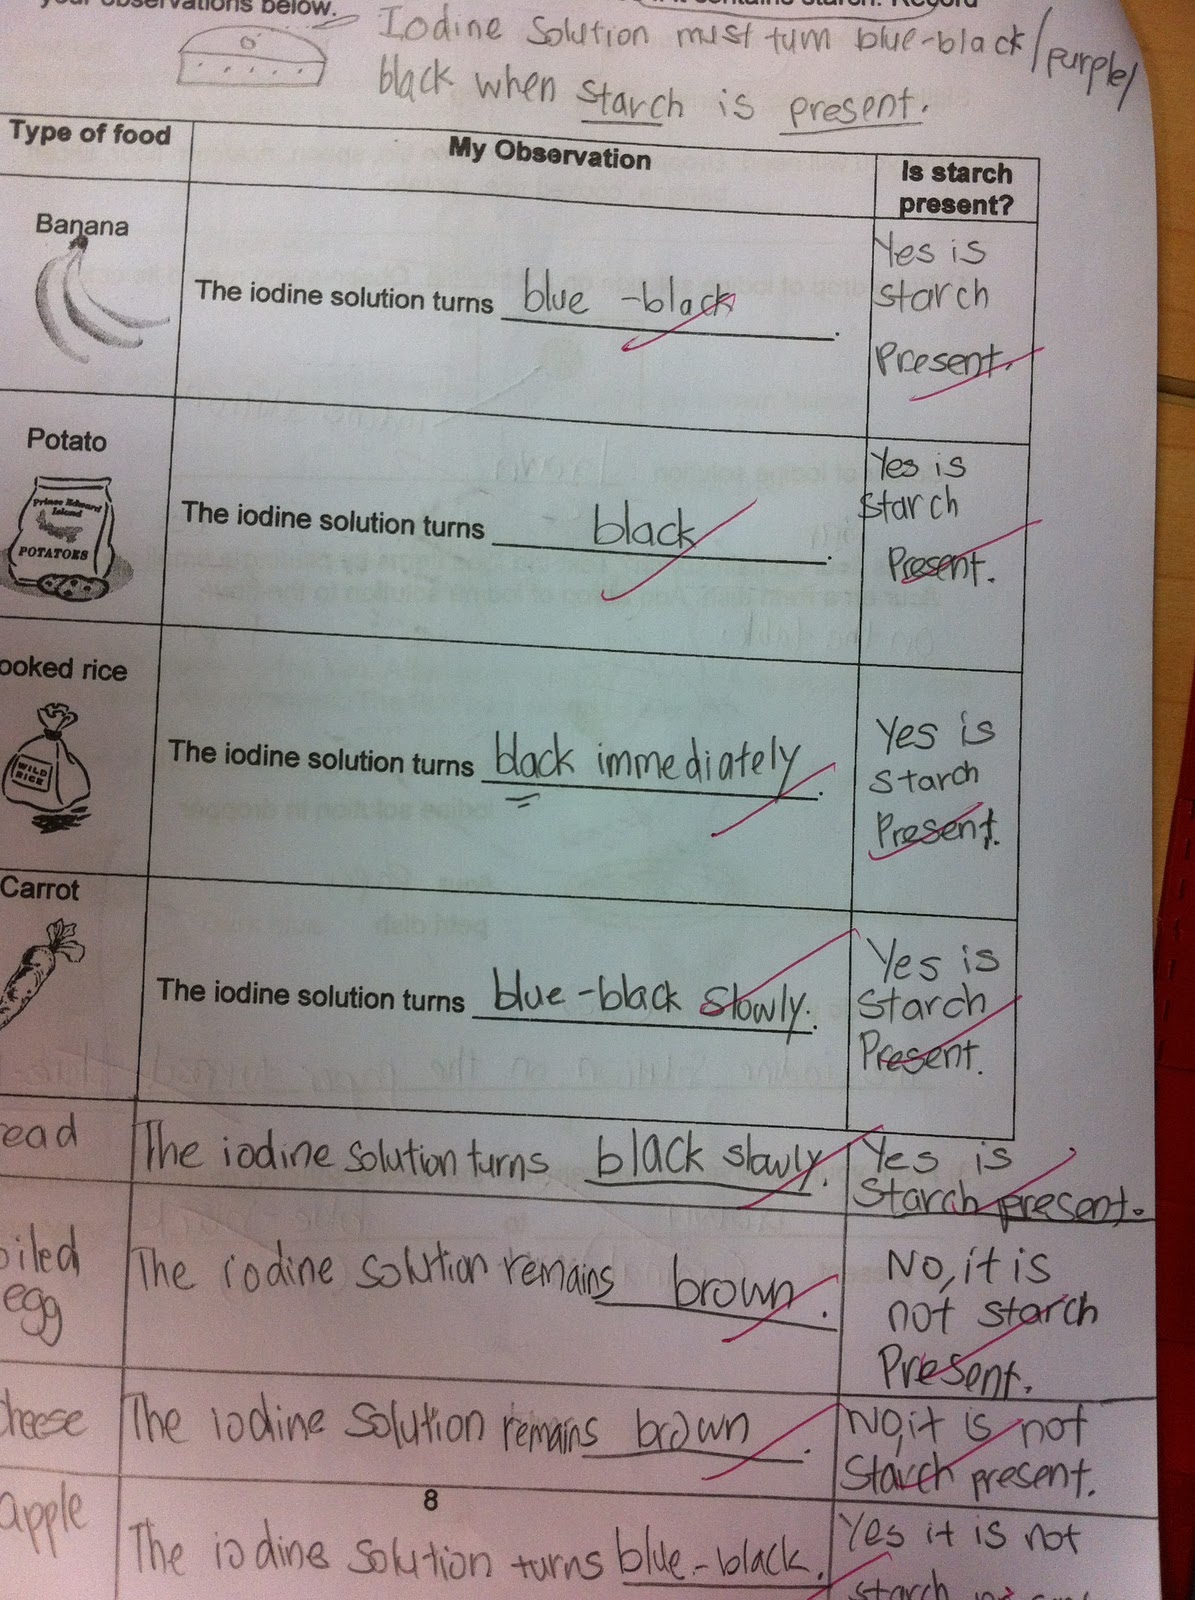 your observations below.
Iodine solution must turn blue-black/purple/
black when starch is present.
Type of food
My Observation
Is starch
present?
Banana
The iodine solution turns blue-black.
Yes is
starch
Present.
Potato
Prince Edward
Island
POTATOES
The iodine solution turns black.
Yes is
starch
Present.
ooked rice
WILD
RICE
The iodine solution turns black immediately.
Yes is
starch
Present.
Carrot
The iodine solution turns blue-black slowly.
Yes is
starch
Present.
ead
The iodine solution turns black slowly.
Yes is
starch present.
oiled
egg
The iodine solution remains brown.
No, it is
not starch
Present.
cheese
The iodine solution remains brown.
No, it is not
starch present.
8
apple
The iodine solution turns blue-black.
Yes it is not
starch